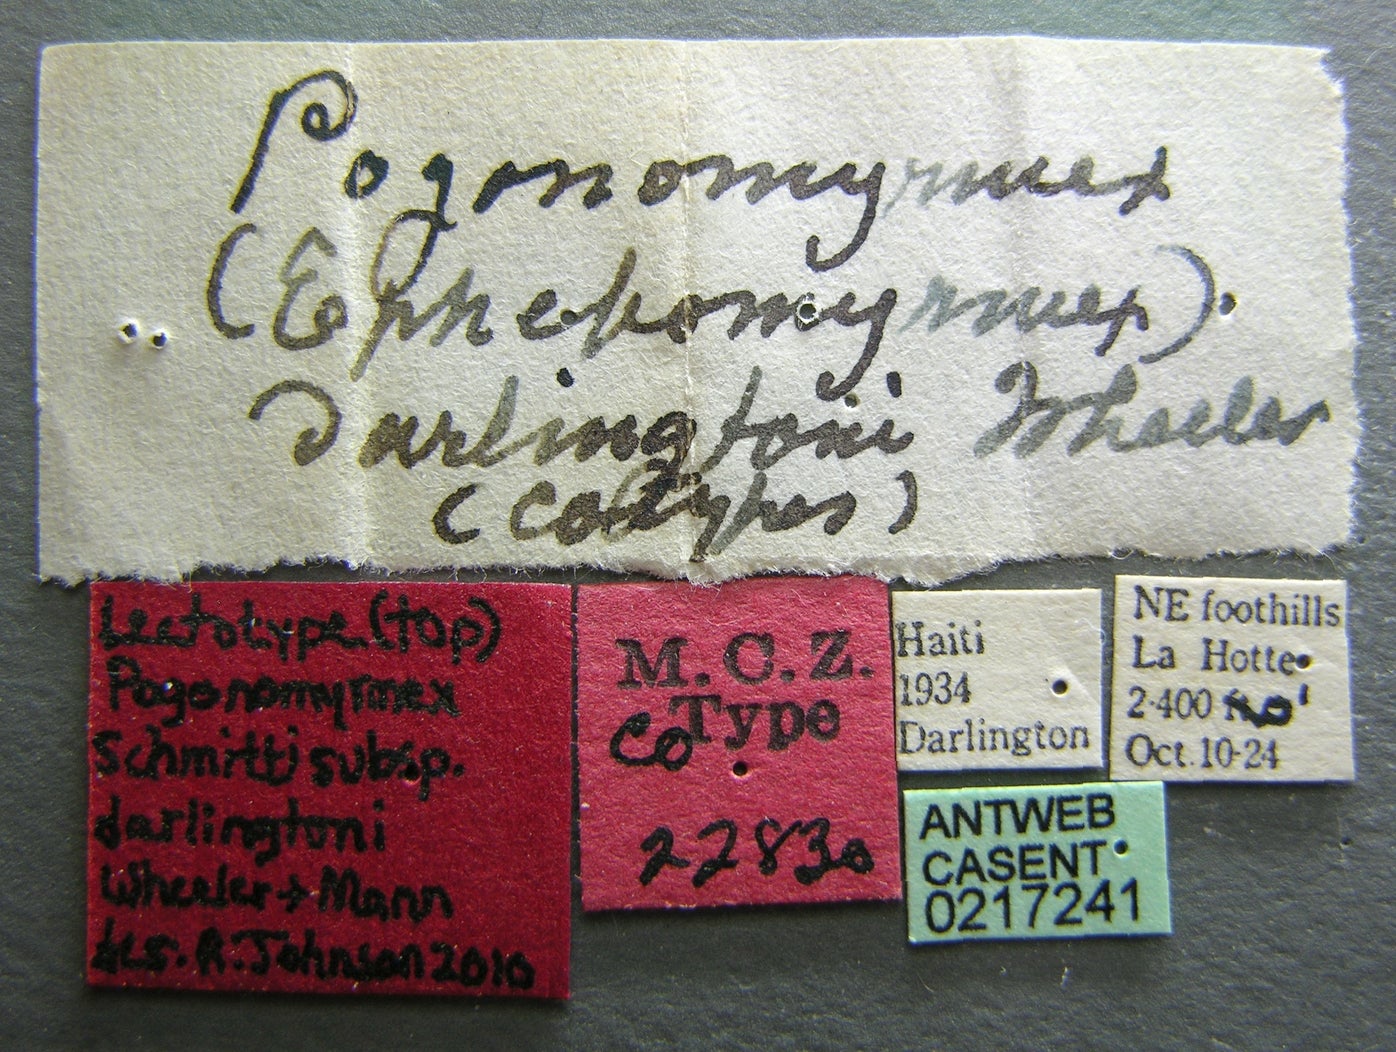 Pogonomyrmex
(Ephebomyrmex)
Darlingtoni Wheeler
(cotypes)
Lectotype (top)
Pogonomyrmex
Schmitti subsp.
darlingtoni
Wheeler + Mann
des. R. Johnson 2010
M.C.Z.
Co Type
22830
Haiti
1934
Darlington
NE foothills
La Hotte
2-400
Oct. 10-24
ANTWEB
CASENT
0217241